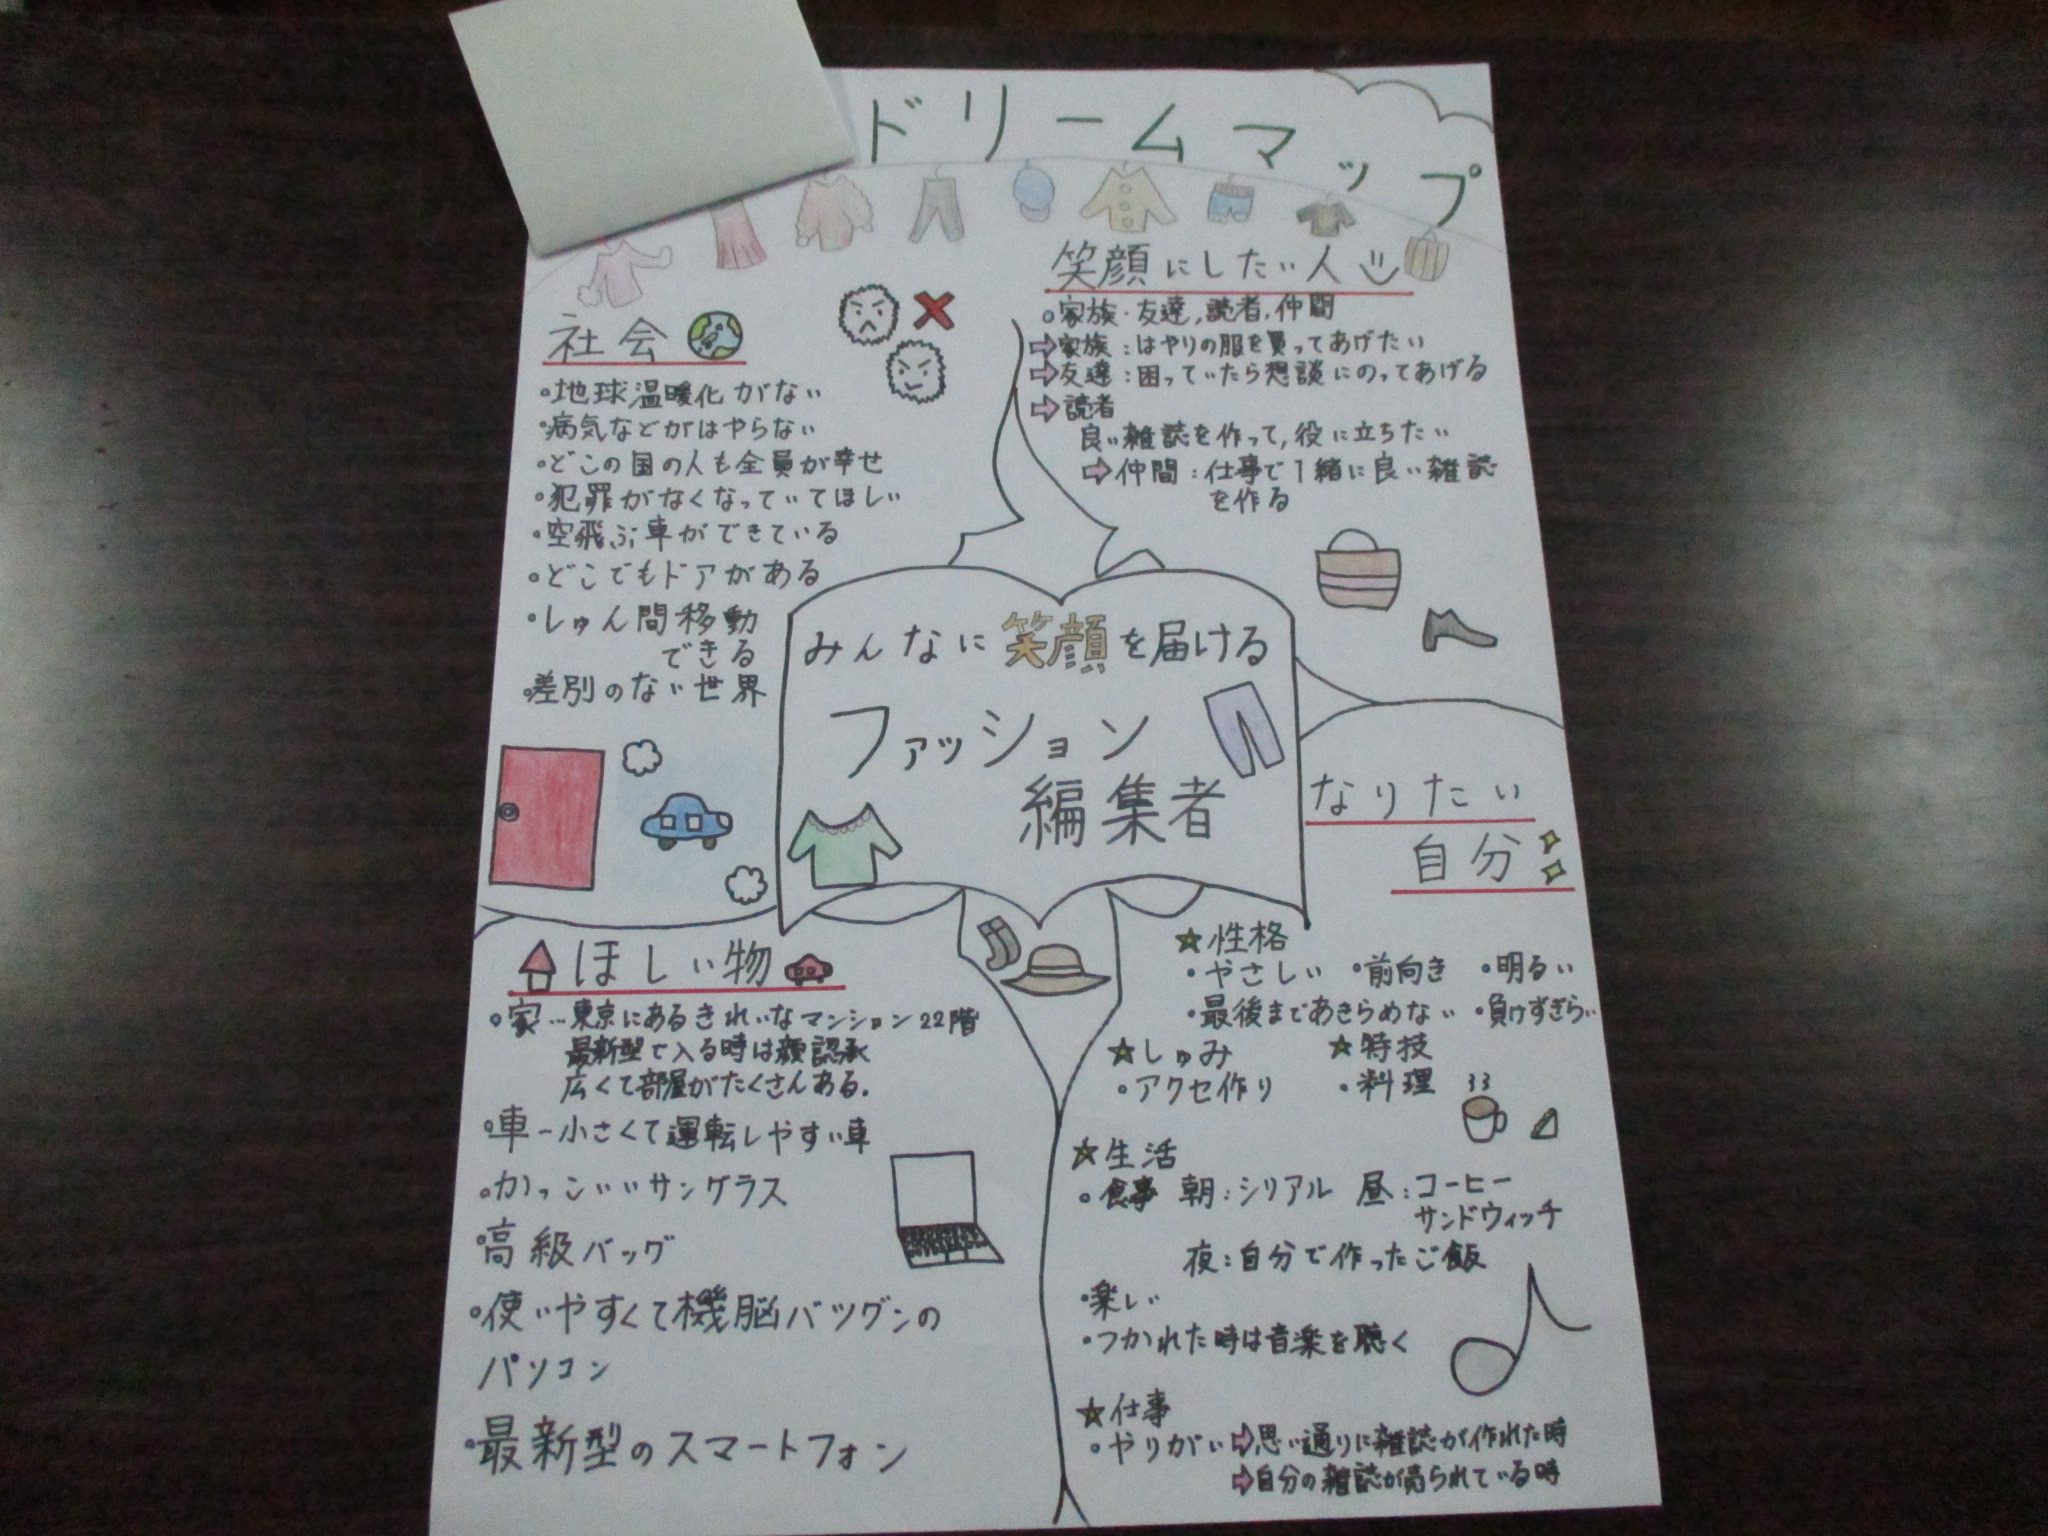 ドリームマップ
社会
・地球温暖化がない
・病気などがはやらない
・どこの国の人も全員が幸せ
・犯罪がなくなっていてほしい
・空飛ぶ車ができている
・どこでもドアがある
・しゅん間移動
できる
・差別のない世界
笑顔にしたい人
・家族・友達,読者.仲間
⇨家族:はやりの服を買ってあげたい
⇨友達:困っていたら想談にのってあげる
⇨読者
良い雑誌を作って,役に立ちたい
⇨仲間:仕事で1緒に良い雑誌
を作る
みんなに笑顔を届ける
ファッション
編集者
なりたい
自分
☆性格
・やさしい ・前向き ・明るい
・最後まであきらめない ・負けずぎらい
☆しゅみ ☆特技
・アクセ作り ・料理
☆生活
・食事 朝:シリアル 昼:コーヒー
サンドウィッチ
夜:自分で作ったご飯
・楽しい
・つかれた時は音楽を聴く
☆仕事
・やりがい⇨思い通りに雑誌が作れた時
⇨自分の雑誌が売られている時
ほしい物
・家…東京にあるきれいなマンション22階
最新型で入る時は顔認承
広くて部屋がたくさんある.
・車―小さくて運転しやすい車
・かっこいいサングラス
・高級バッグ
・使いやすくて機脳バツグンの
パソコン
・最新型のスマートフォン